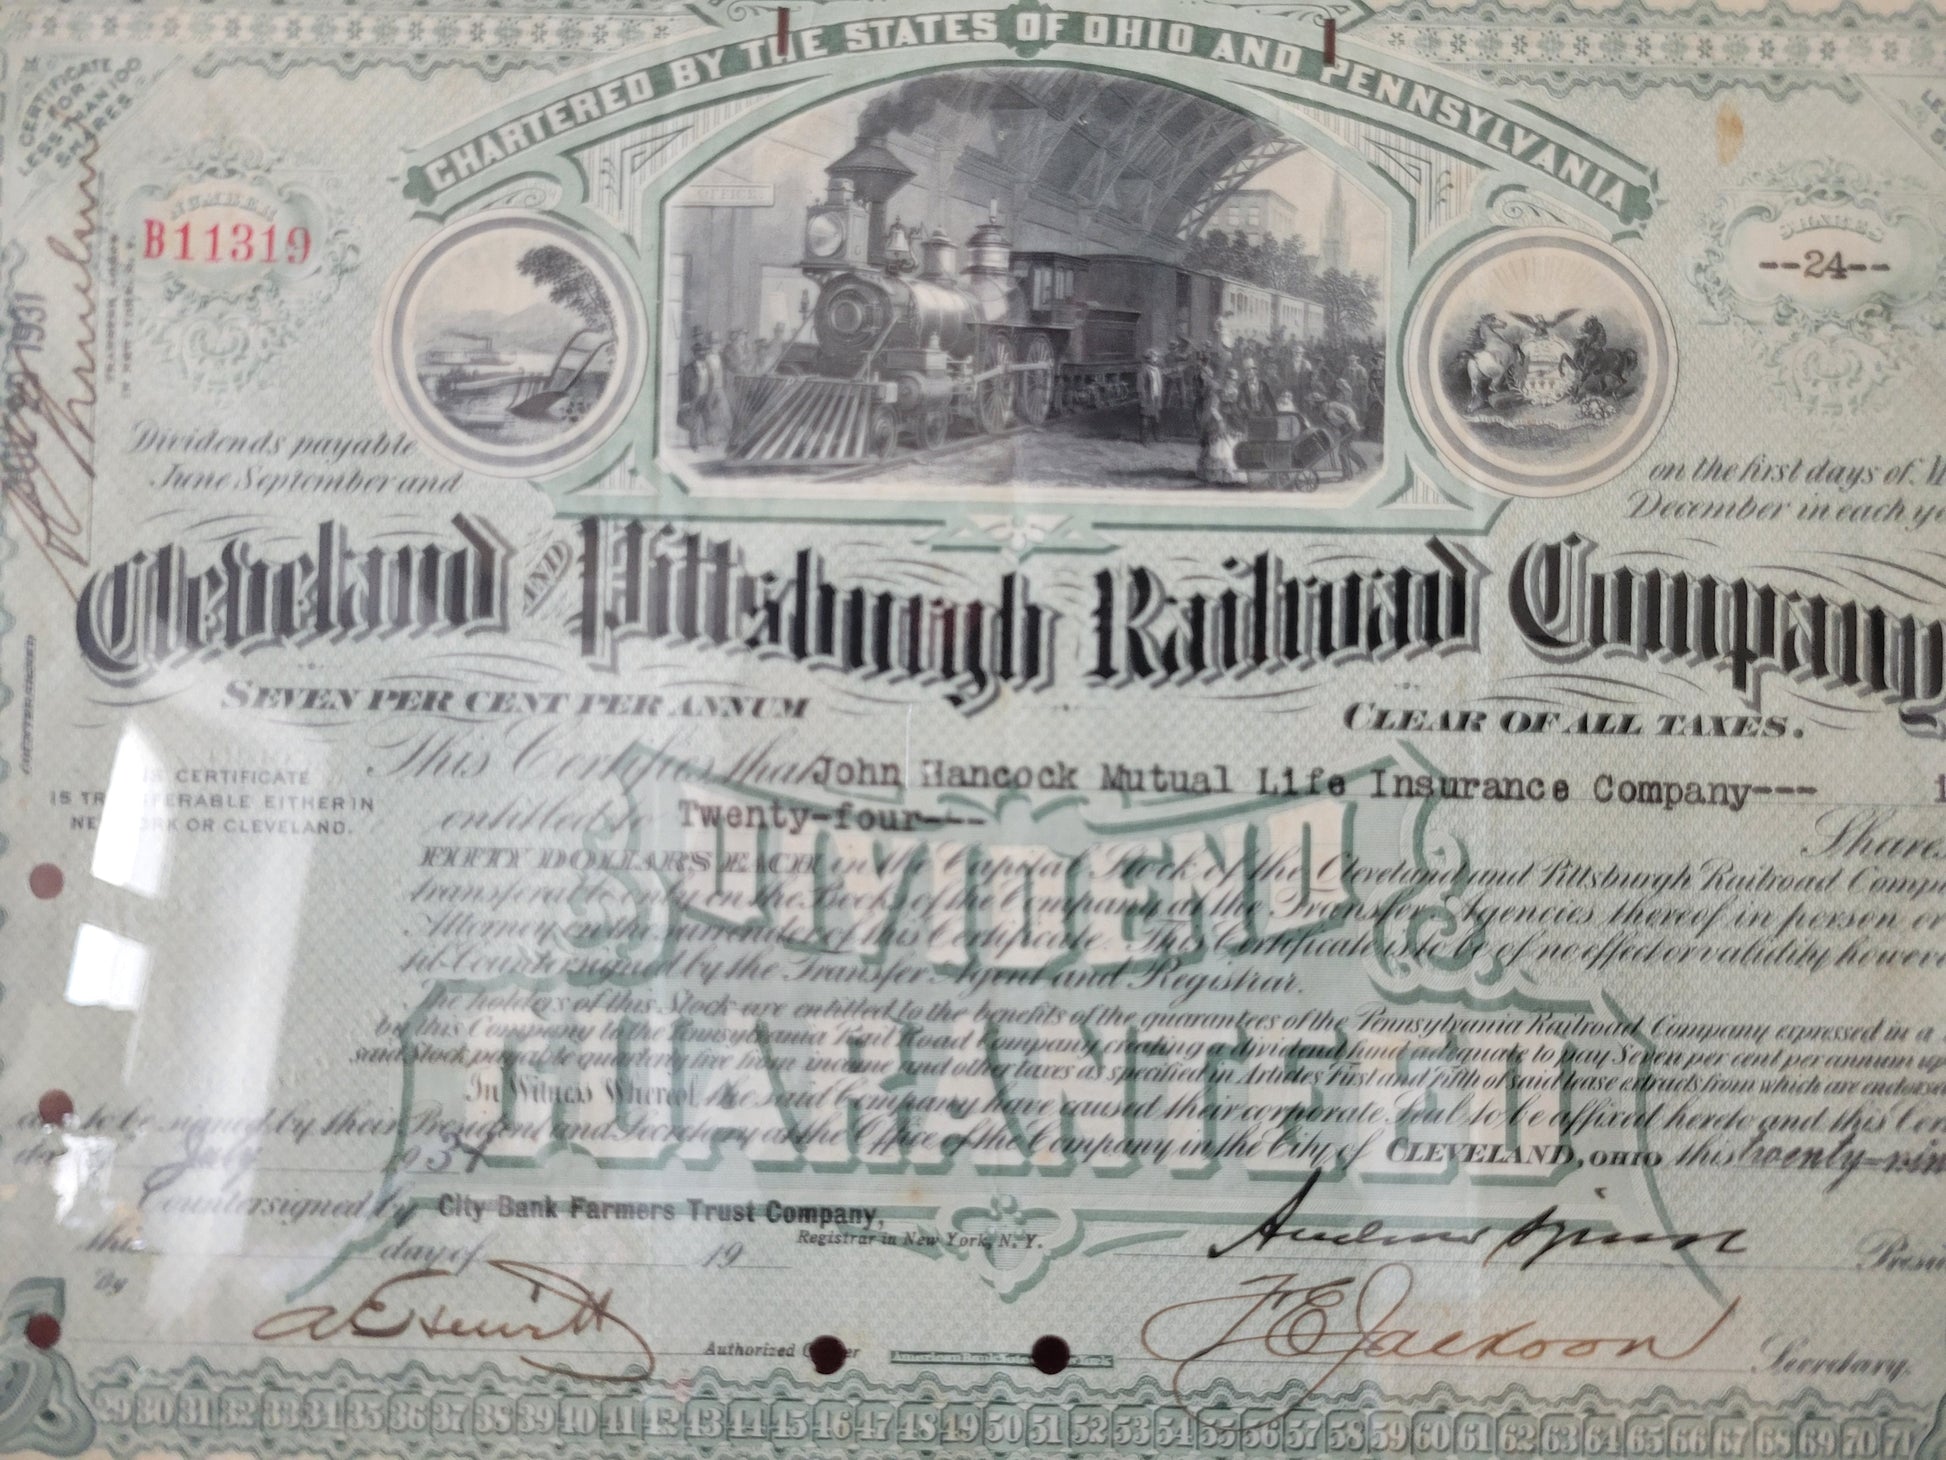 CHARTERED BY THE STATES OF OHIO AND PENNSYLVANIA
CERTIFICATE
FOR
LESS THAN 100
SHARES
OFFICE
NUMBER
B11319
SHARES
--24--
1931
Dividends payable
June September and
on the first days of M
December in each ye
Cleveland AND Pittsburgh Railroad Company
SEVEN PER CENT PER ANNUM
CLEAR OF ALL TAXES.
COUNTERSIGNED
IS CERTIFICATE
IS TR FERABLE EITHER IN
NE RK OR CLEVELAND.
This Certifies that John Hancock Mutual Life Insurance Company---
entitled to Twenty-four---
Shares
FIFTY DOLLARS EACH in the Capital Stock of the Cleveland and Pittsburgh Railroad Comp
transferable only on the Books of the Company at the Transfer Agencies thereof in person or
Attorney on the surrender of this Certificate. This Certificate is to be of no effect or validity howev
til Countersigned by the Transfer Agent and Registrar.
The holders of this Stock are entitled to the benefits of the guarantees of the Pennsylvania Railroad Company expressed in a
by this Company to the Pennsylvania Rail Road Company creating a dividend fund adequate to pay Seven per cent per annum up
said Stock payable quarterly free from income and other taxes as specified in Articles First and Fifth of said lease extracts from which are endorse
In Witness Whereof, the said Company have caused their corporate Seal to be affixed hereto and this Cer
to be signed by their President and Secretary at the Office of the Company in the City of CLEVELAND, OHIO this twenty-nin
da July 1931
DIVIDEND
GUARANTEED
Countersigned by City Bank Farmers Trust Company,
Registrar in New York, N.Y.
this day of 19
By
Presi
Authorized
American Bank Note
F E Jackson
Secretary.
29 30 31 32 33 34 35 36 37 38 39 40 41 42 43 44 45 46 47 48 49 50 51 52 53 54 55 56 57 58 59 60 61 62 63 64 65 66 67 68 69 70 71